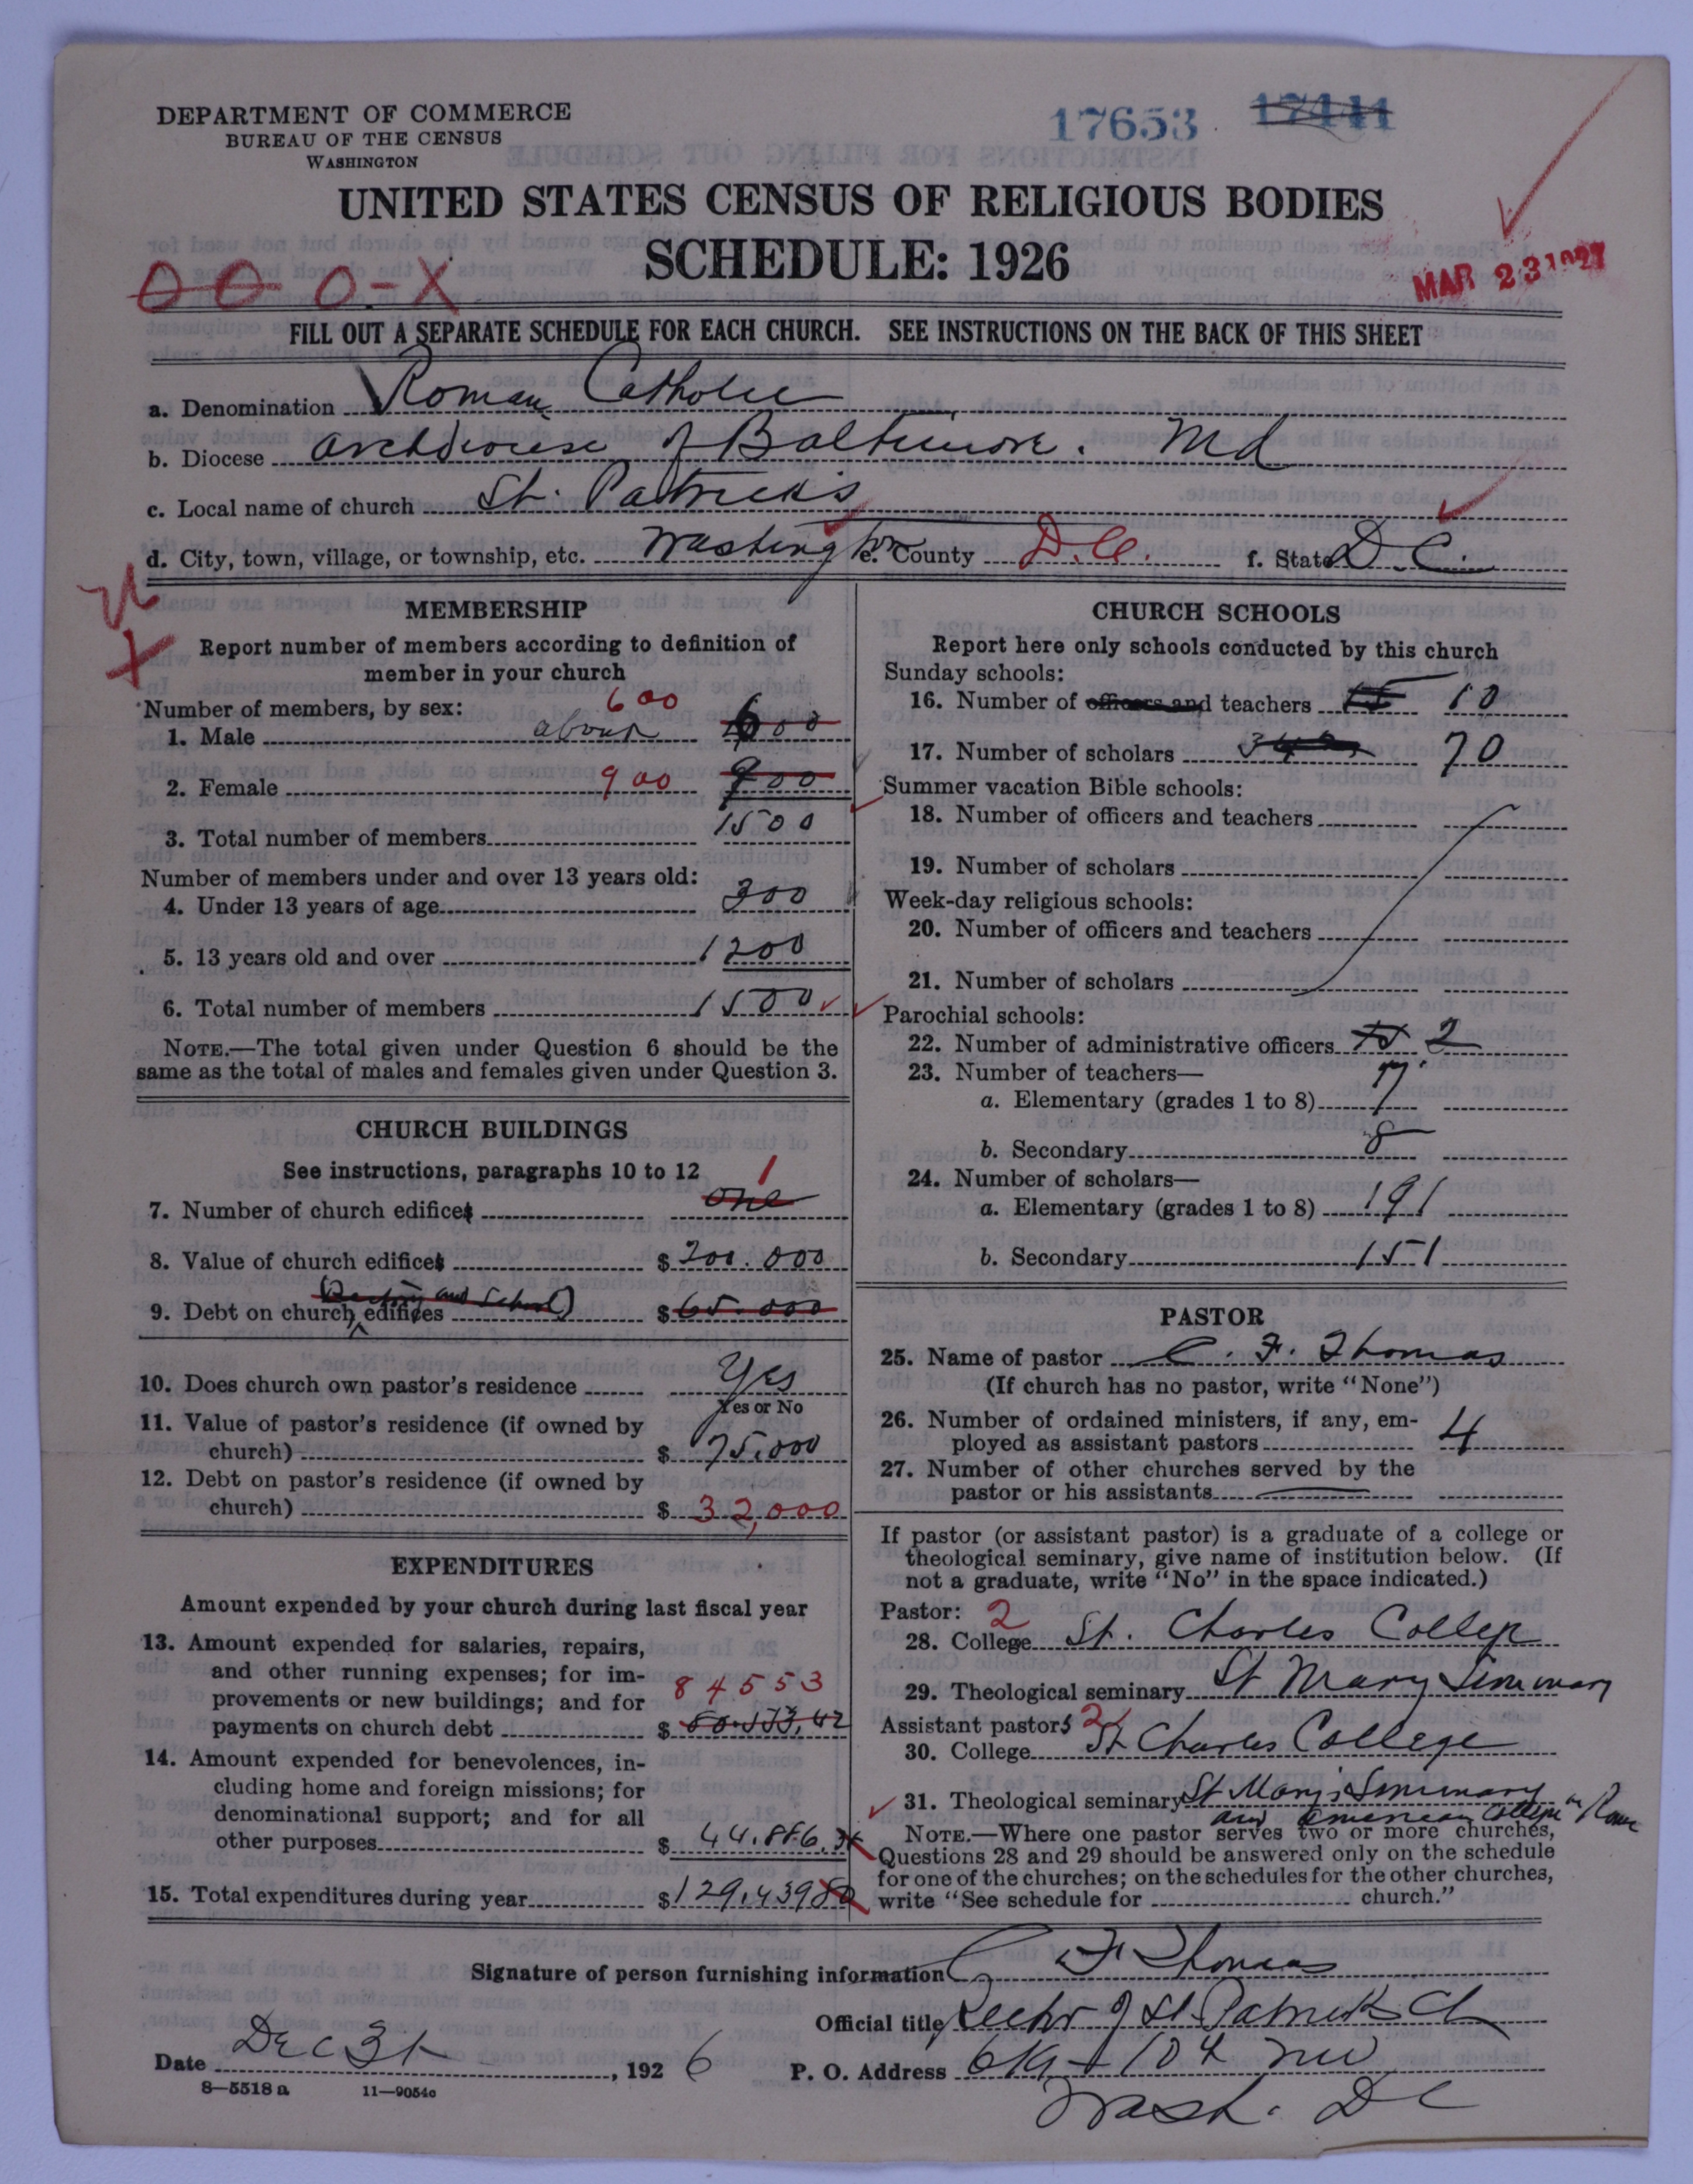 DEPARTMENT OF COMMERCE
BUREAU OF THE CENSUS
WASHINGTON
17653 17441
UNITED STATES CENSUS OF RELIGIOUS BODIES
SCHEDULE: 1926
0 0 0-X
MAR 23 1927
FILL OUT A SEPARATE SCHEDULE FOR EACH CHURCH. SEE INSTRUCTIONS ON THE BACK OF THIS SHEET
a. Denomination Roman Catholic
b. Diocese Archdiocese of Baltimore. Md
c. Local name of church St. Patrick's
d. City, town, village, or township, etc. Washington e. County D.C. f. State D.C.
MEMBERSHIP
Report number of members according to definition of
member in your church
Number of members, by sex:
600
1. Male about 600
2. Female 900 900
3. Total number of members 1500
Number of members under and over 13 years old:
4. Under 13 years of age 300
5. 13 years old and over 1200
6. Total number of members 1500
NOTE.—The total given under Question 6 should be the
same as the total of males and females given under Question 3.
CHURCH BUILDINGS
See instructions, paragraphs 10 to 12
1
7. Number of church edifices one
8. Value of church edifices $ 200.000
(Rectory and School)
9. Debt on church edifices $ 65.000
10. Does church own pastor's residence Yes
Yes or No
11. Value of pastor's residence (if owned by
church) $ 75.000
12. Debt on pastor's residence (if owned by
church) $ 32,000
EXPENDITURES
Amount expended by your church during last fiscal year
13. Amount expended for salaries, repairs,
and other running expenses; for im-
provements or new buildings; and for 84553
payments on church debt $
14. Amount expended for benevolences, in-
cluding home and foreign missions; for
denominational support; and for all
other purposes $ 44.886
15. Total expenditures during year $ 129.439 80
CHURCH SCHOOLS
Report here only schools conducted by this church
Sunday schools:
16. Number of officers and teachers 15 10
17. Number of scholars 70
Summer vacation Bible schools:
18. Number of officers and teachers
19. Number of scholars
Week-day religious schools:
20. Number of officers and teachers
21. Number of scholars
Parochial schools:
22. Number of administrative officers 2
23. Number of teachers—
a. Elementary (grades 1 to 8) 7
b. Secondary 8
24. Number of scholars—
a. Elementary (grades 1 to 8) 191
b. Secondary 151
PASTOR
25. Name of pastor C. F. Thomas
(If church has no pastor, write "None")
26. Number of ordained ministers, if any, em-
ployed as assistant pastors 4
27. Number of other churches served by the
pastor or his assistants
If pastor (or assistant pastor) is a graduate of a college or
theological seminary, give name of institution below. (If
not a graduate, write "No" in the space indicated.)
Pastor: 2
28. College St. Charles College
29. Theological seminary St Mary Seminary
Assistant pastors 2
30. College St Charles College
31. Theological seminary St Mary's Seminary
and American College in Rome
NOTE.—Where one pastor serves two or more churches,
Questions 28 and 29 should be answered only on the schedule
for one of the churches; on the schedules for the other churches,
write "See schedule for church."
Signature of person furnishing information C F Thomas
Official title Rector of St. Patricks Ch
Date Dec 31, 1926 P. O. Address 619 - 10th NW
Wash. DC
8—5518 a 11—9054c